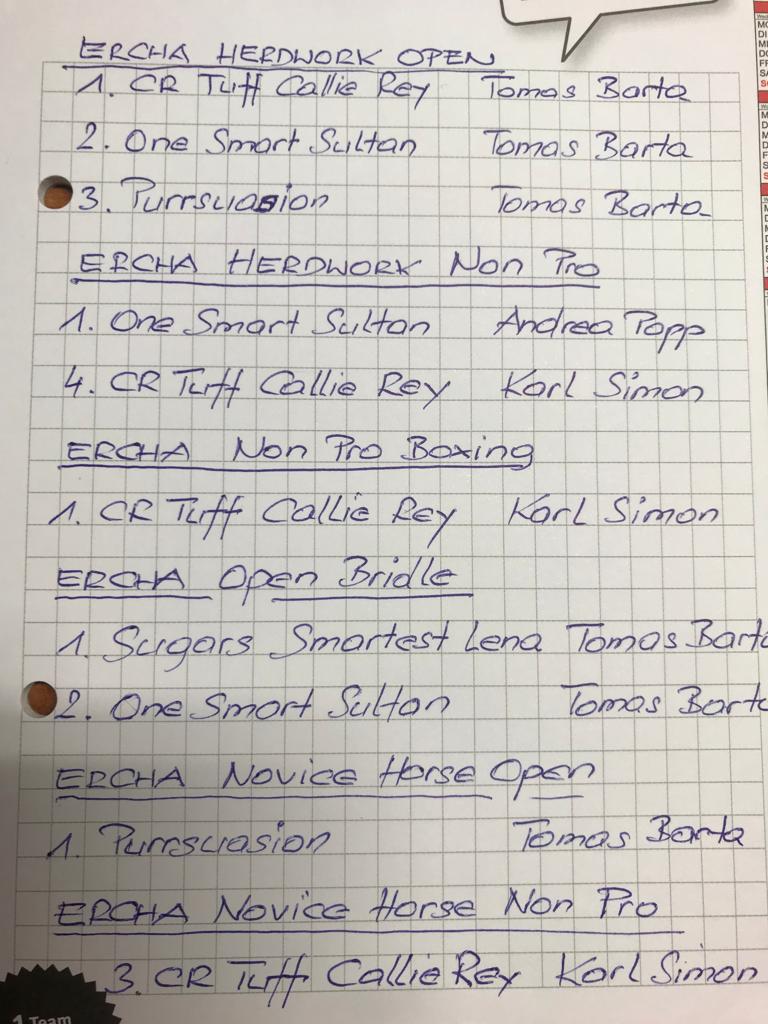 ERCHA HERDWORK OPEN
1. CR Tuff Callie Rey Tomas Barta
2. One Smart Sultan Tomas Barta
3. Purrsuasion Tomas Barta
ERCHA HERDWORK Non Pro
1. One Smart Sultan Andrea Popp
4. CR Tuff Callie Rey Karl Simon
ERCHA Non Pro Boxing
1. CR Tuff Callie Rey Karl Simon
ERCHA Open Bridle
1. Sugars Smartest Lena Tomas Barta
2. One Smart Sultan Tomas Barta
ERCHA Novice Horse Open
1. Purrsuasion Tomas Barta
ERCHA Novice Horse Non Pro
3. CR Tuff Callie Rey Karl Simon
1 Team